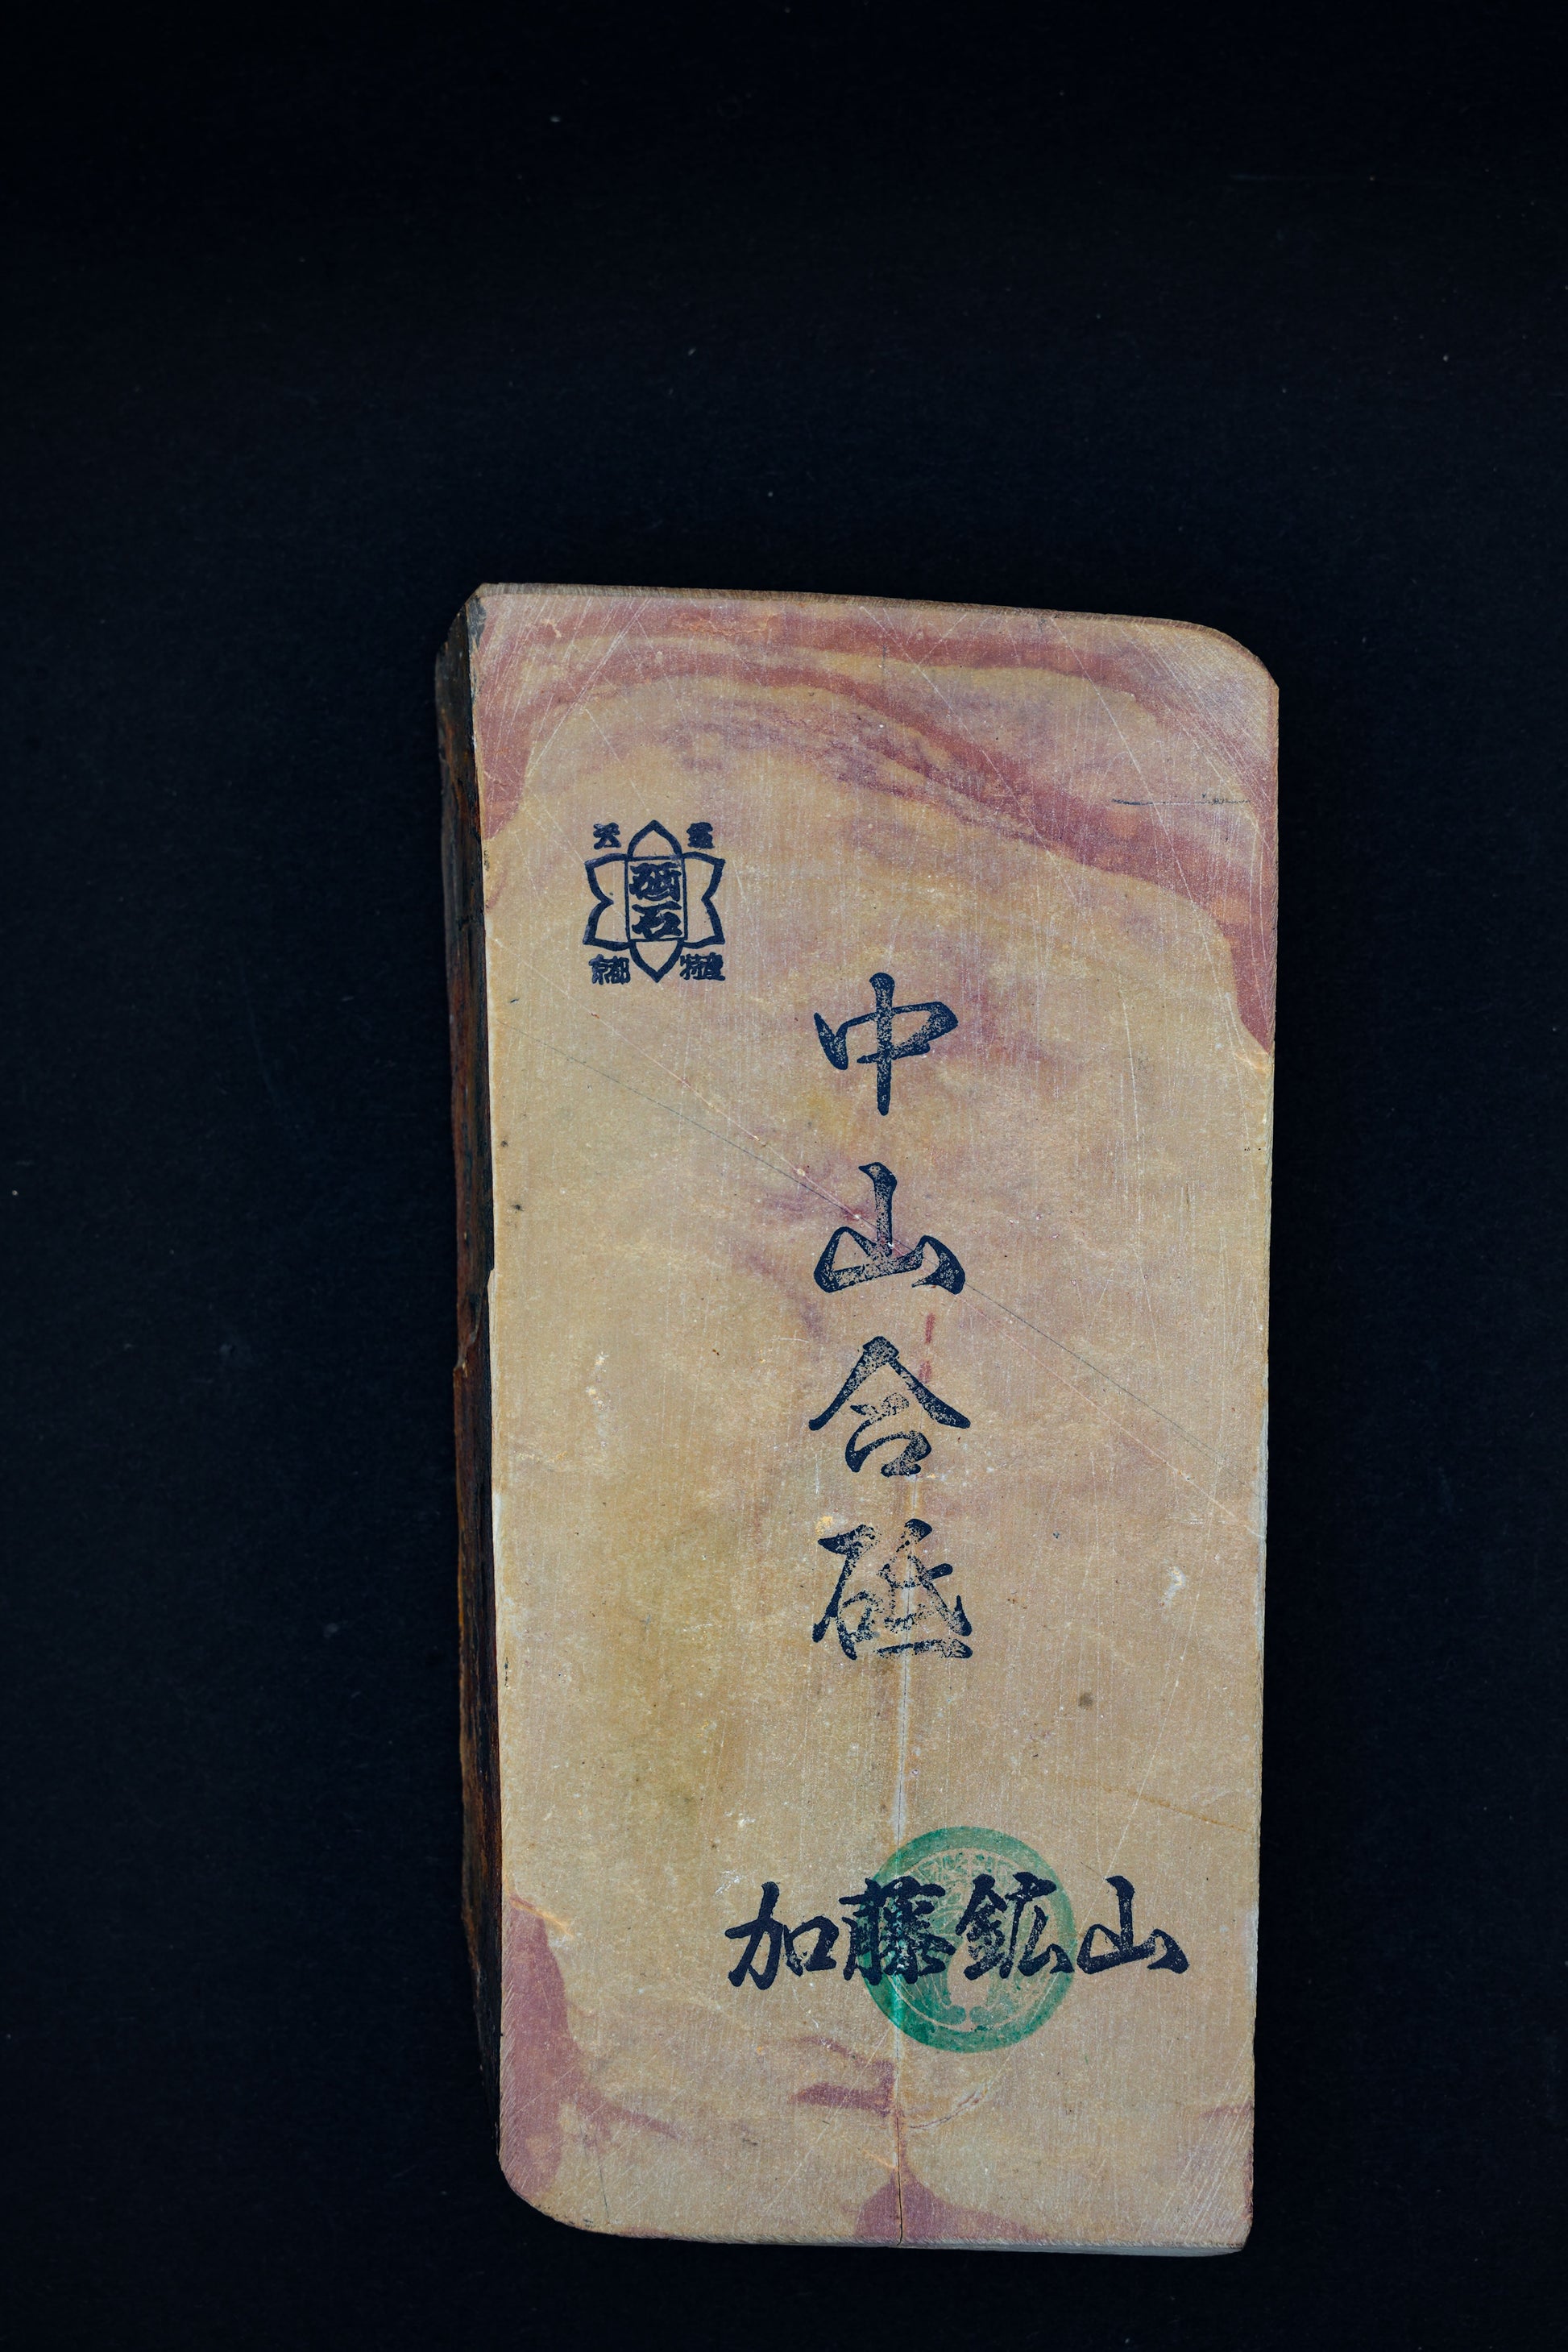 天然
砥石
京都 特産
中山合砥
加藤鉱山